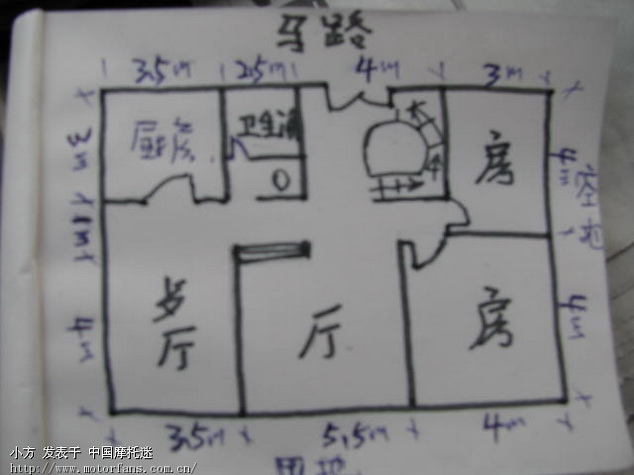 马路
3.5m 2.5m 4m 3m
厨房
卫生间
房
3m
4m
空地
1m
4m
歺厅
厅
房
4m
3.5m 5.5m 4m
田地
小方 发表于 中国摩托迷
http://www.motorfans.com.cn/